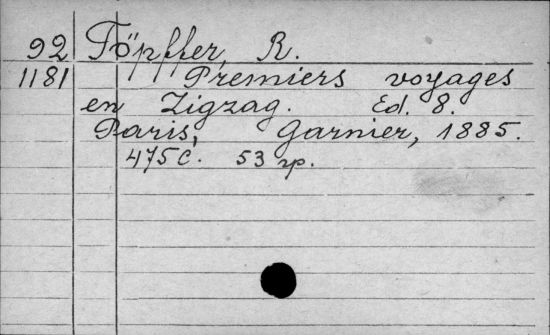 92 Töpffer, R.
1181 Premiers voyages
en Zigzag. Ed. 8.
Paris, Garnier, 1885.
475 c. 53 гр.